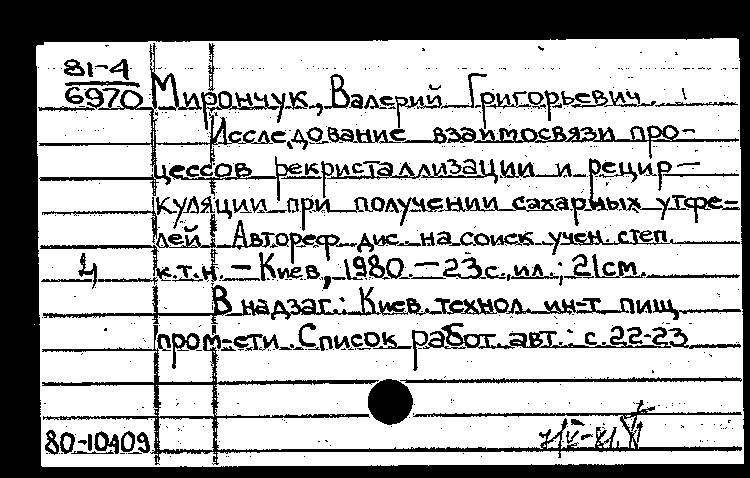 81-4
6970
Мирончук, Валерий Григорьевич.
Исследование взаимосвязи про-
цессов рекристаллизации и рецир-
куляции при получении сахарных утфе-
лей. Автореф. дис. на соиск. учен. степ.
к.т.н. – Киев, 1980. – 23 с., ил.; 21 см.
В надзаг.: Киев. технол. ин-т пищ.
пром-сти. Список работ. авт.: с. 22-23
80-10409